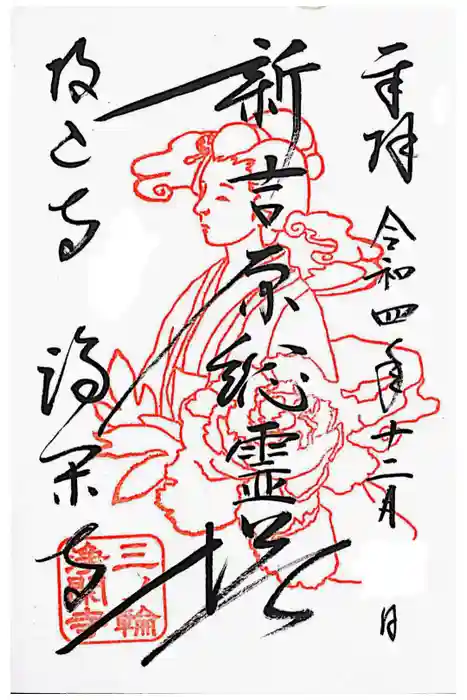 奉拝 令和四年十二月 日
新吉原総霊塔
投込寺 浄閑寺
三ノ輪
浄閑寺